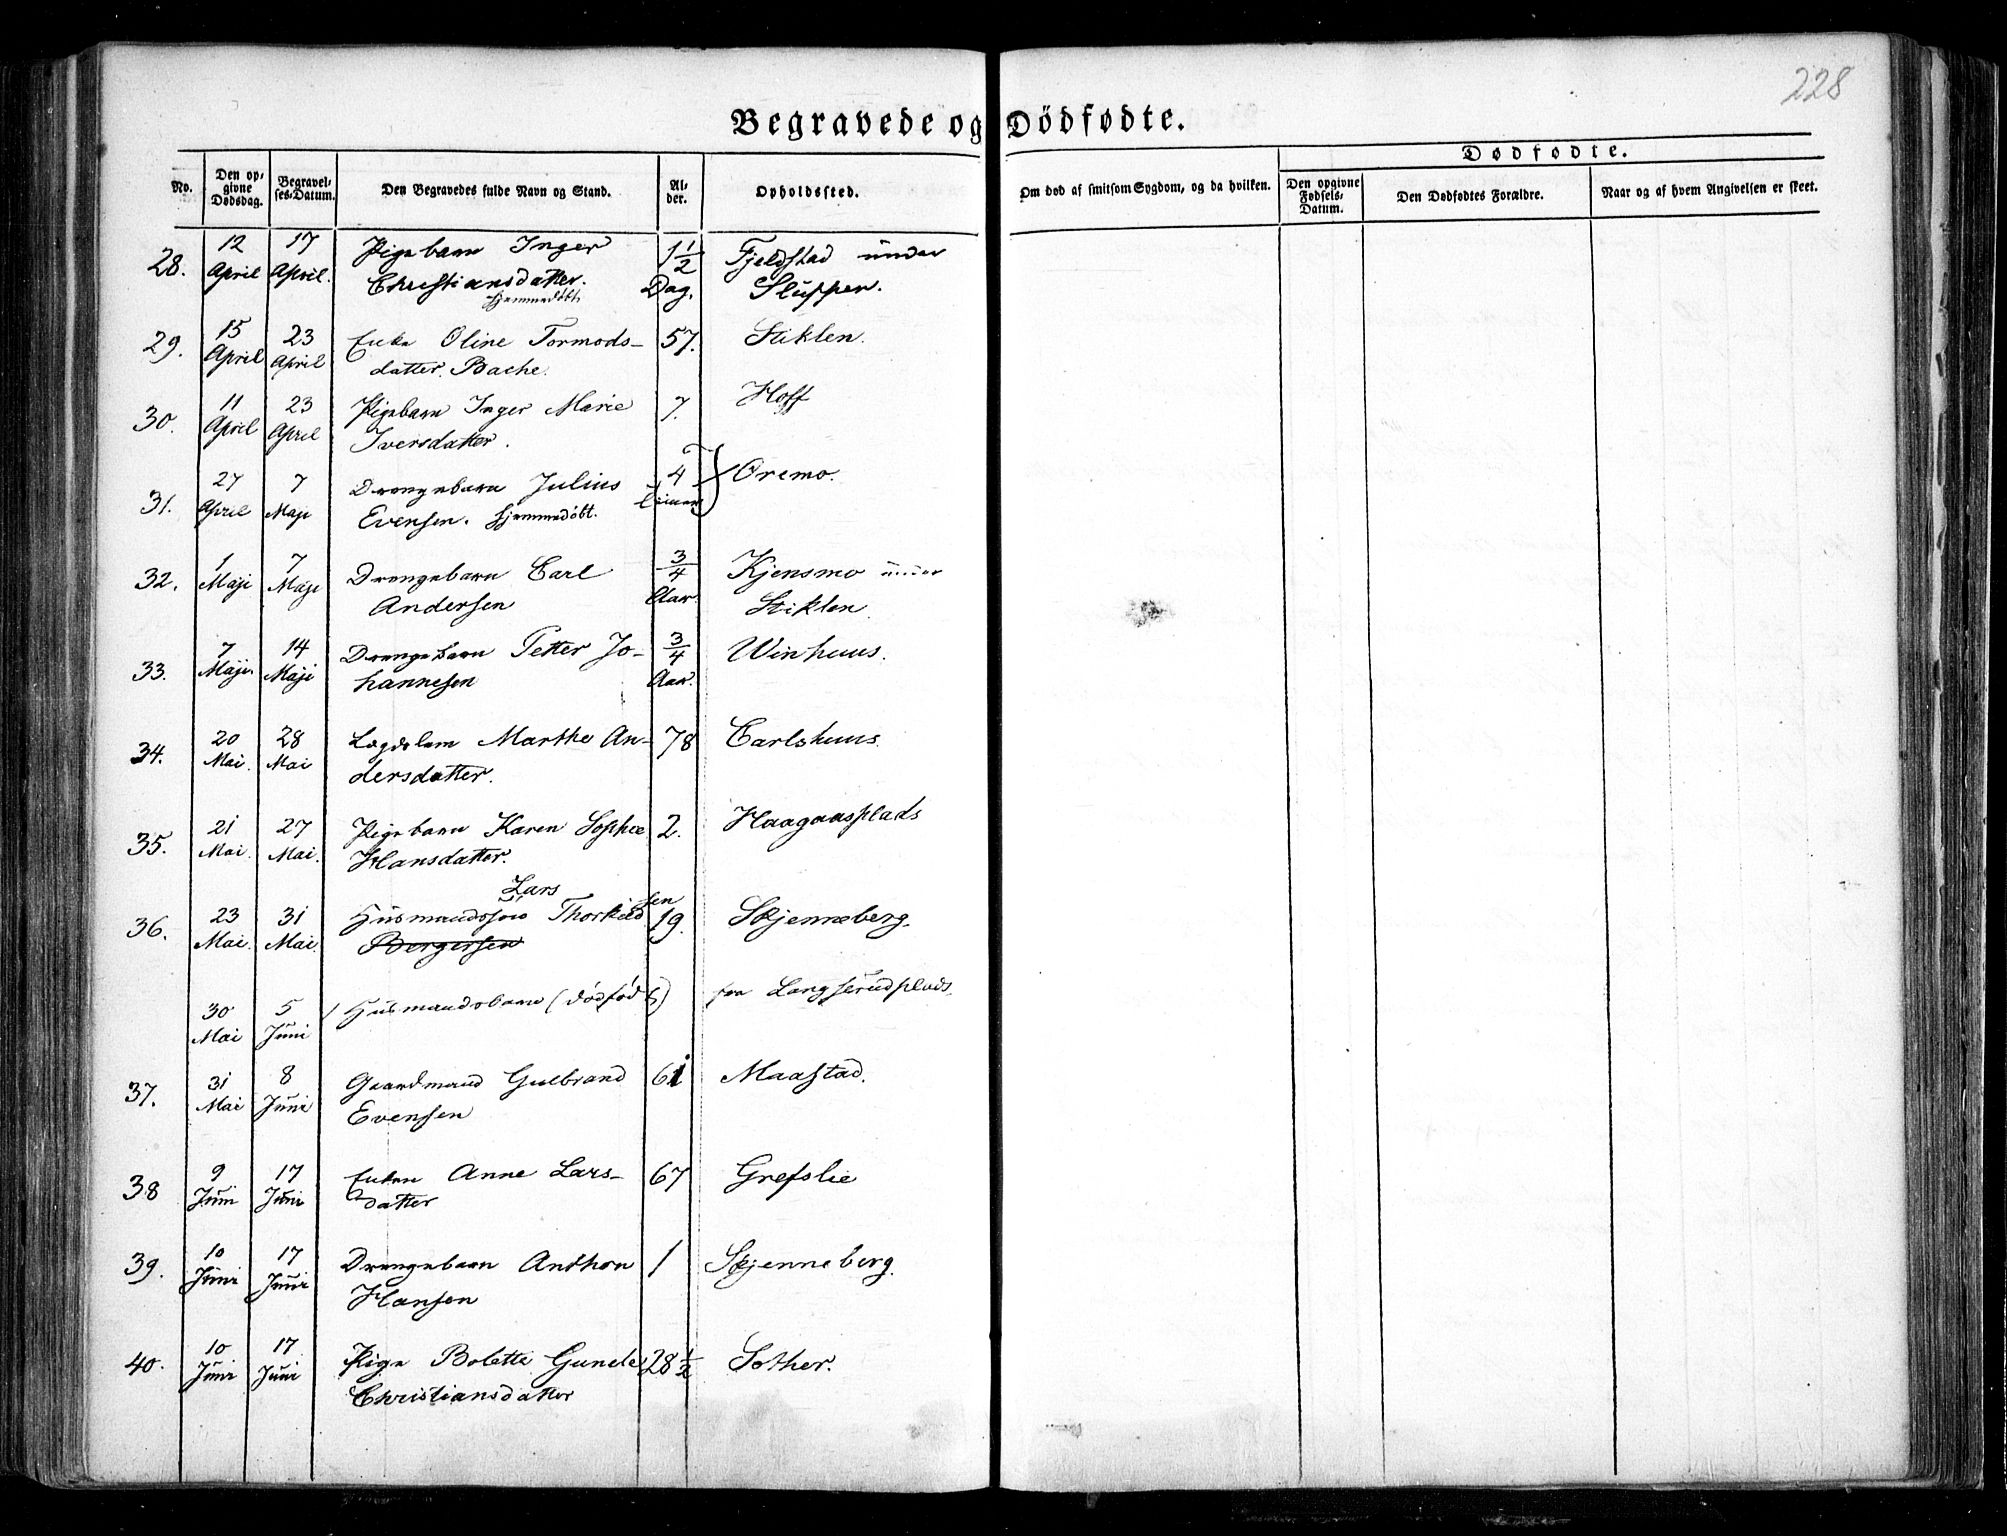 228
Begravede og Dödfødte.
Dødfødte.
No.
Den opgivne Dødsdag.
Begravelses-Datum.
Den Begravedes fulde Navn og Stand.
Alder.
Opholdssted.
Om død af smitsom Sygdom, og da hvilken.
Den opgivne Fødsels-Datum.
Den Dødfødtes Forældre.
Naar og af hvem Angivelsen er skeet.
28. 12 April 17 April. Pigebarn Inger 1½ Dag. Fjeldstad under
Christiansdatter. Slupper.
Hjemmedøbt
29. 15 April 23 April Enke Oline Tormods- 57. Stiklen.
datter. Bache.
30. 11 April 23 April Pigebarn Inger Marie 7. Hoff
Iversdatter.
31. 27 April 7 Maji Drengebarn Julius 4 Oremo.
Evensen. Hjemmedøbt.
32. 1 Maji 7 Maji Drengebarn Carl ¾ Aar. Kjensmo under
Andersen Stiklen.
33. 7 Maji. 14 Maji Drengebarn Petter Jo- ¾ Aar. Winhuus.
hannesen
34. 20 Mai. 28 Mai Lægdslem Marthe An- 78 Carlshuus.
dersdatter.
35. 21 Mai. 27 Mai. Pigebarn Karen Sophie 2. Haagaasplads
Hansdatter.
Lars
36. 23 Mai. 31 Mai. Huusmandssøn Thorkildsen 19. Skjenneberg.
Bergersen
30 Mai 5 Juni Husmandsbarn (dødfødt) fra Langserudplads.
37. 31 Mai 8 Juni Gaardmand Gulbrand 61 Maastad.
Evensen
38 9 Juni 17 Juni Enken Anne Lars- 67 Grefslie
datter
39. 10 Juni 17 Juni Drengebarn Anthon 1 Skjenneberg.
Hansen
40. 10 Juni 17 Juni Pige Bolette Gunele 28½ Sother.
Christiansdatter